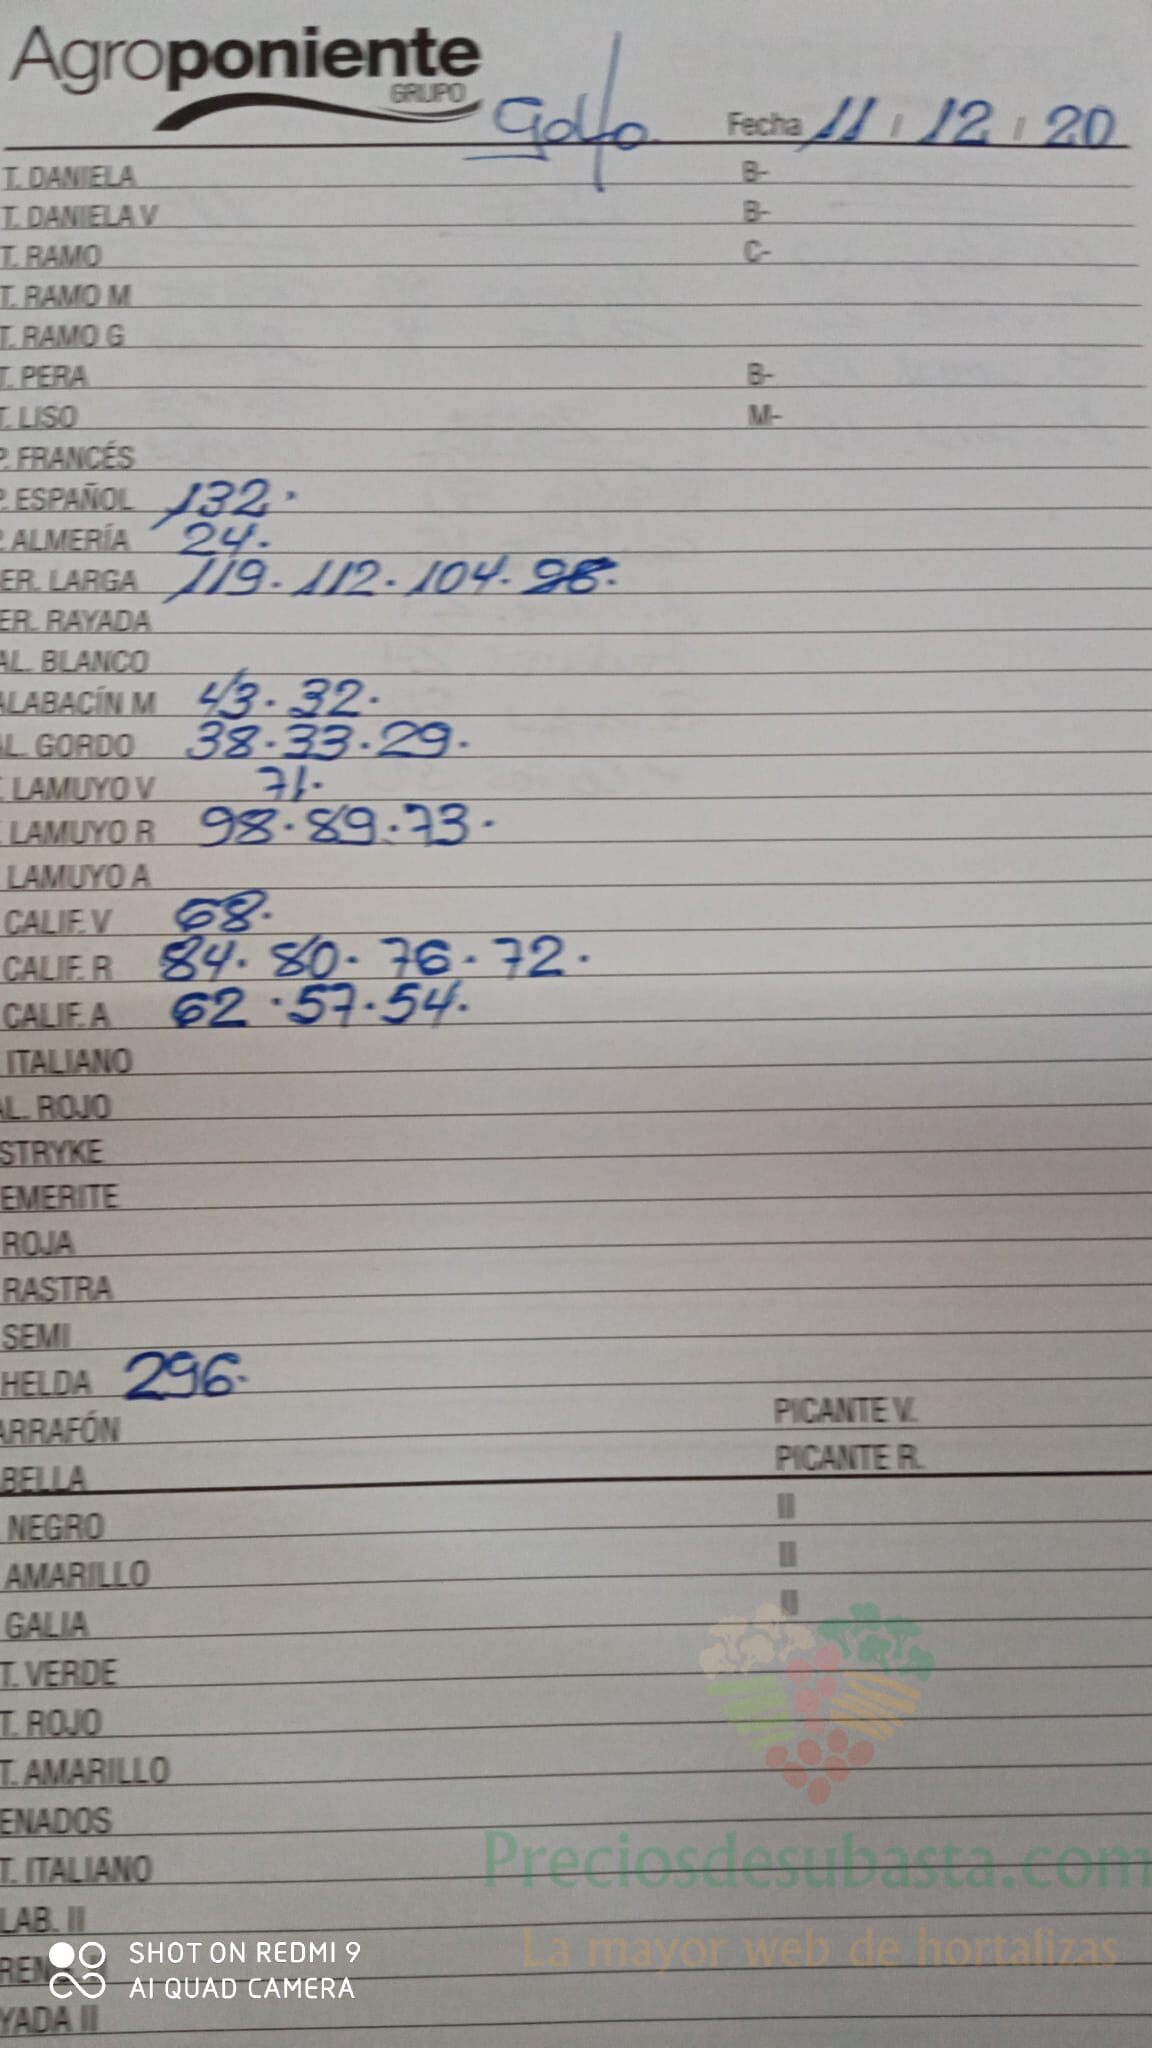 Agroponiente
GRUPO
Golfo Fecha 11 / 12 / 20
T. DANIELA B-
T. DANIELA V B-
T. RAMO C-
T. RAMO M
T. RAMO G
T. PERA B-
T. LISO M-
P. FRANCÉS
P. ESPAÑOL 132.
P. ALMERÍA 24.
ER. LARGA 119. 112. 104. 98.
ER. RAYADA
AL. BLANCO
ALABACÍN M 43. 32.
AL. GORDO 38. 33. 29.
LAMUYO V 71.
LAMUYO R 98. 89. 73.
LAMUYO A
CALIF. V 68.
CALIF. R 84. 80. 76. 72.
CALIF. A 62. 57. 54.
ITALIANO
AL. ROJO
STRYKE
EMERITE
ROJA
RASTRA
SEMI
HELDA 296.
ARRAFÓN PICANTE V.
BELLA PICANTE R.
NEGRO II
AMARILLO II
GALIA II
T. VERDE
T. ROJO
T. AMARILLO
ENADOS
T. ITALIANO
Preciosdesubasta.com
LAB. II
La mayor web de hortalizas
SHOT ON REDMI 9
AI QUAD CAMERA
YADA II